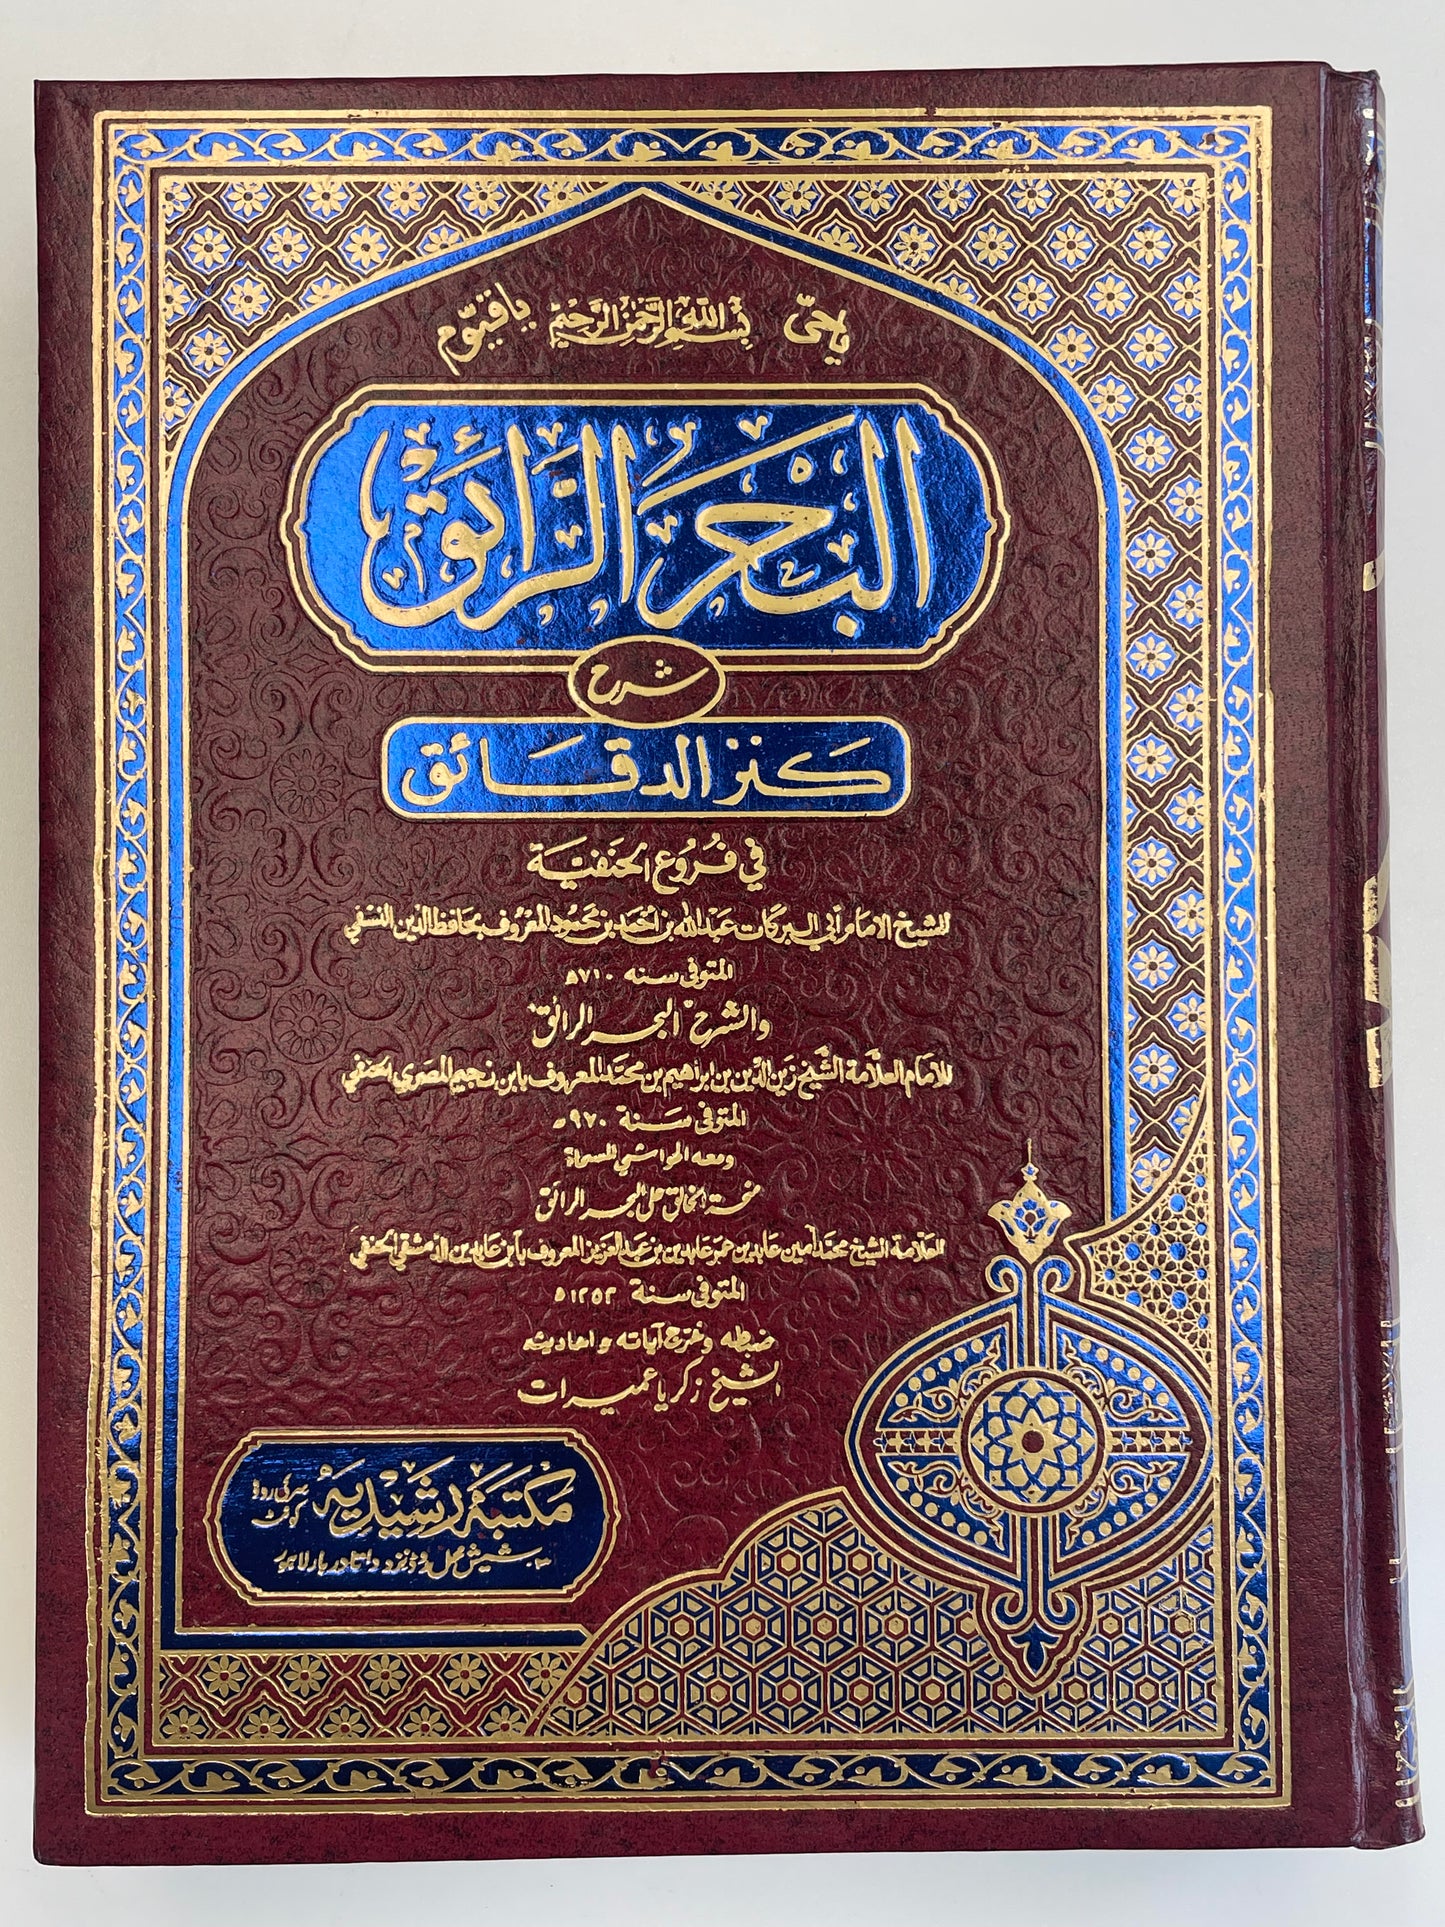 ياحيّ بِسْمِ اللهِ الرَّحْمٰنِ الرَّحِيْمِ ياقيّوم
البَحْرُ الرَّائِق
شرح
كنز الدقائق
في فُرُوع الحَنَفيَّة
للشيخ الامام أبي البركات عَبْدالله بن أحمَد بن محمود المعرُوف بحافظ الدّين النسَفي
المتوفى سنه ٧١٠ه
والشرح البحر الرائق
للامام العلاَّمة الشَّيخ زين الدّين بن ابراهيم بن محمَّد المعروف بابن نجيم المصري الحنفي
المتوفى سَنة ٩٧٠ه
ومعه الحواشي المسماة
منحة الخالق على البحر الرائق
للعلاّمة الشيخ محمّد أمين عابدين بن عمر عابدين بن عبدالعزيز المعروف بابن عابدين الدمشقي الحنفي
المتوفى سنة ١٢٥٢ه
ضبطه وخرج آياته واحاديثه
الشيخ زكريا عميرات
مكتبَة رَشيديه سرکی روڈ کوئٹہ
لاہور